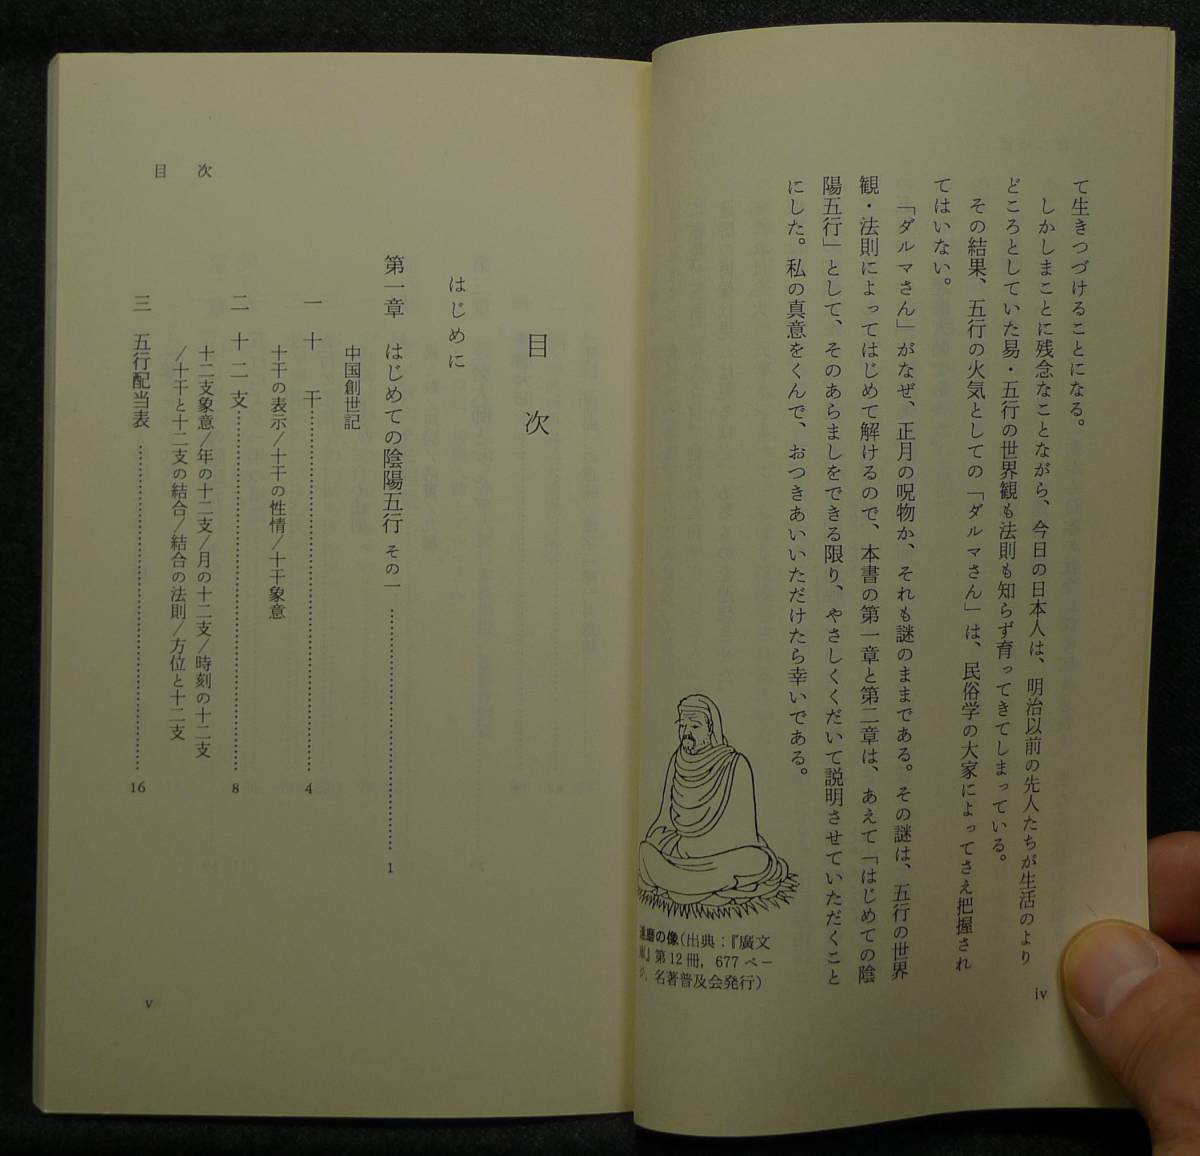 て生きつづけることになる。
しかしまことに残念なことながら、今日の日本人は、明治以前の先人たちが生活のより
どころとしていた易・五行の世界観も法則も知らず育ってきてしまっている。
その結果、五行の火気としての「ダルマさん」は、民俗学の大家によってさえ把握され
てはいない。
「ダルマさん」がなぜ、正月の呪物か、それも謎のままである。その謎は、五行の世界
観・法則によってはじめて解けるので、本書の第一章と第二章は、あえて「はじめての陰
陽五行」として、そのあらましをできる限り、やさしくくだいて説明させていただくこと
にした。私の真意をくんで、おつきあいいただけたら幸いである。
達磨の像(出典:『廣文
』第12冊, 677ペー
ジ, 名著普及会発行)
iv
目次
はじめに
第一章 はじめての陰陽五行 その一 …… 1
中国創世記
一 十干 …… 4
十干の表示/十干の性情/十干象意
二 十二支 …… 8
十二支象意/年の十二支/月の十二支/時刻の十二支
/十干と十二支の結合/結合の法則/方位と十二支
三 五行配当表 …… 16
目次
v